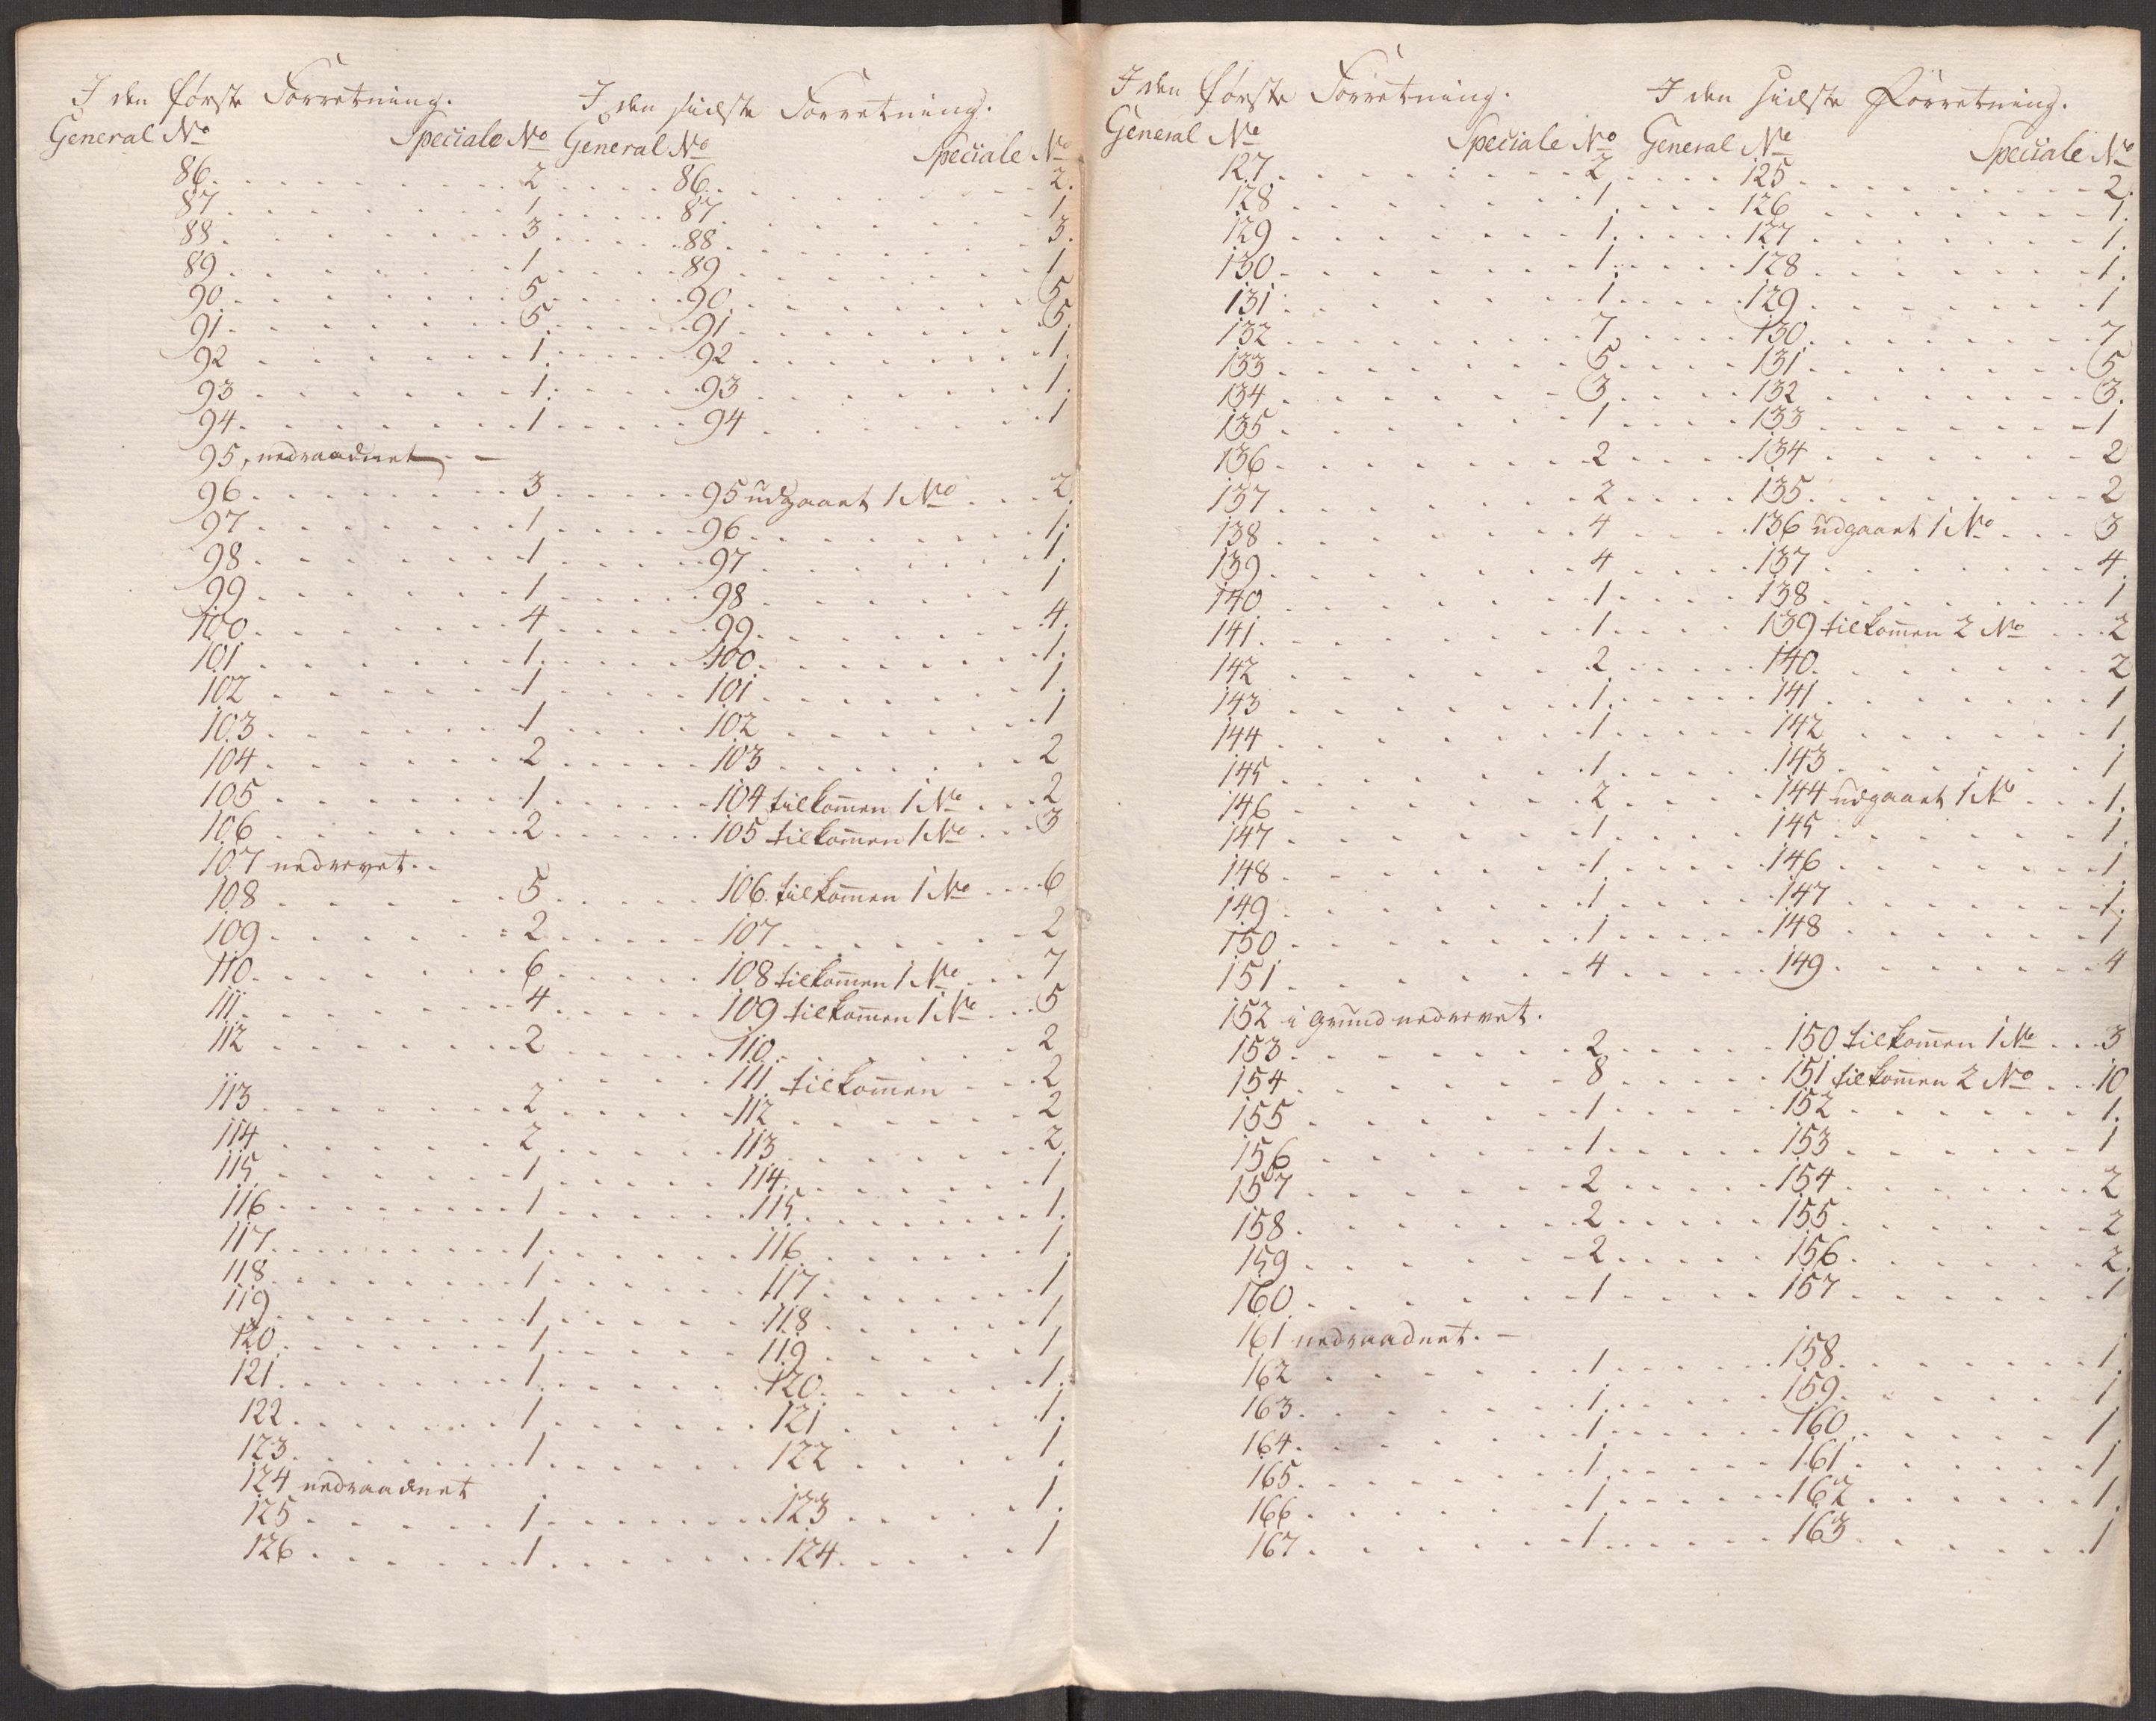 I den første Forretning. I den sidste Forretning.
General No Speciale No General No Speciale No
86. 2 86. 2.
87. 1 87. 1
88. 3 88. 3.
89. 1 89 1
90. 5 90. 5
91. 5. 91. 5.
92. 1. 92. 1.
93. 1. 93. 1.
94. 1 94. 1
95, nedraadnet
96. 3 95 udgaaet 1 No 2.
97. 1 96. 1.
98. 1 97. 1.
99. 1 98. 1
100. 4 99. 4.
101. 1. 100. 1.
102. 1 101. 1.
103. 1 102. 1
104. 2 103. 2
105. 1 104 tilkom̄en 1 No 2
106. 2 105 tilkom̄en 1 No 3
107 nedrevet.
108. 5 106. tilkom̄en 1 No 6
109. 2 107. 2
110. 6 108 tilkom̄en 1 No 7
111. 4 109 tilkom̄en 1 No 5
112. 2 110. 2
111 tilkom̄en 2
113. 2 112. 2
114. 2 113. 2
115. 1 114. 1
116. 1 115. 1.
117. 1. 116. 1.
118. 1. 117. 1
119. 1 118. 1
120. 1. 119. 1
121. 1. 120. 1.
122. 1. 121. 1.
123. 1. 122. 1.
124 nedraadnet
125. 1. 123. 1.
126. 1. 124. 1
I den første Forretning. I den sidste Forretning.
General No Speciale No General No Speciale No
127. 2 125. 2.
128. 1. 126. 1.
129. 1. 127. 1.
130. 1. 128. 1.
131. 1. 129. 1
132. 7 130. 7
133. 5 131. 5
134. 3 132. 3.
135. 1 133. 1
136. 2 134. 2
137. 2 135. 2
138. 4 136 udgaaet 1 No 3
139. 4 137. 4.
140. 1 138. 1
141. 1 139 tilkom̄en 2 No 2
142. 2 140. 2
143. 1. 141. 1
144. 1 142. 1.
145. 1 143. 1
146. 2 144 udgaaet 1 No 1.
147. 1 145. 1.
148. 1 146. 1.
149. 1 147. 1.
150. 1 148. 1
151. 4 149. 4
152 i Grund nedrevet.
153. 2 150 tilkom̄en 1 No 3
154. 8 151 tilkom̄en 2 No 10
155. 1 152. 1.
156. 1 153. 1
157. 2 154. 2
158. 2 155. 2
159. 2 156. 2.
160. 1 157. 1
161 nedraadnet.
162. 1 158. 1.
163. 1. 159. 1
164. 1 160. 1
165. 1. 161. 1
166. 1 162. 1.
167. 1 163. 1